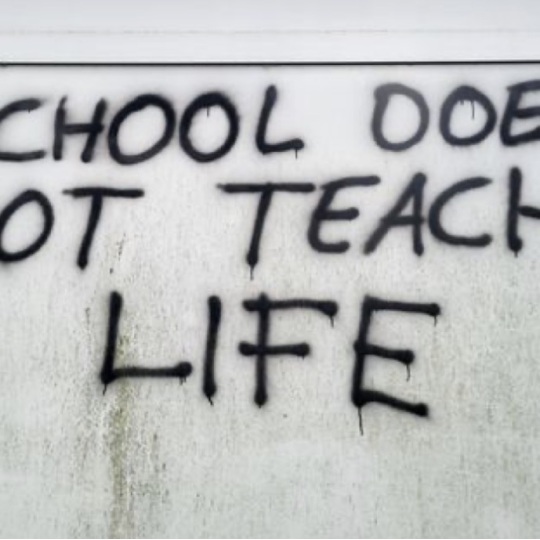 CHOOL DOE
OT TEACH
LIFE